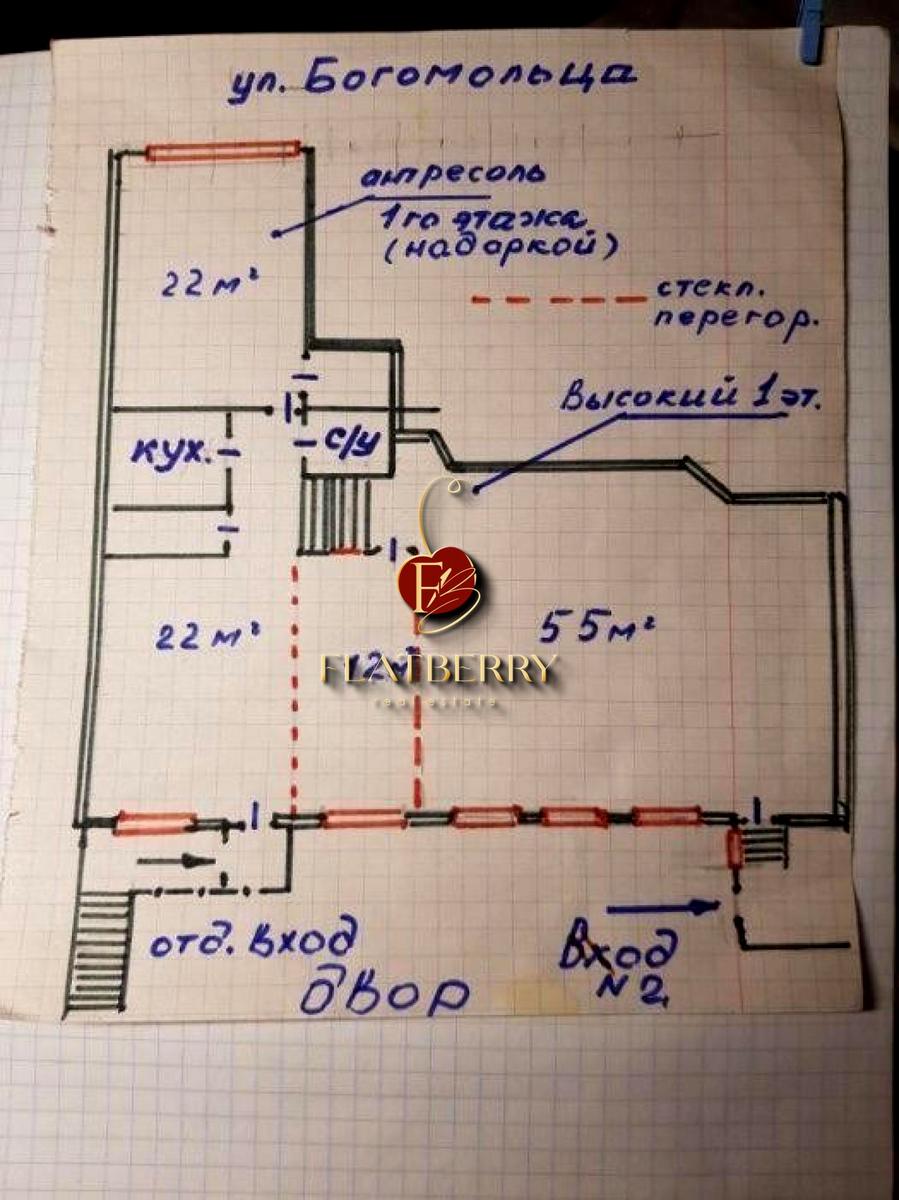 ул. Богомольца
антресоль
1го этажа
(над аркой)
22 м²
стекл.
перегор.
Высокий 1 эт.
кух.
с/у
22 м²
12 м²
55 м²
F
FLATBERRY
real estate
отд. Вход
Вход
N 2
двор